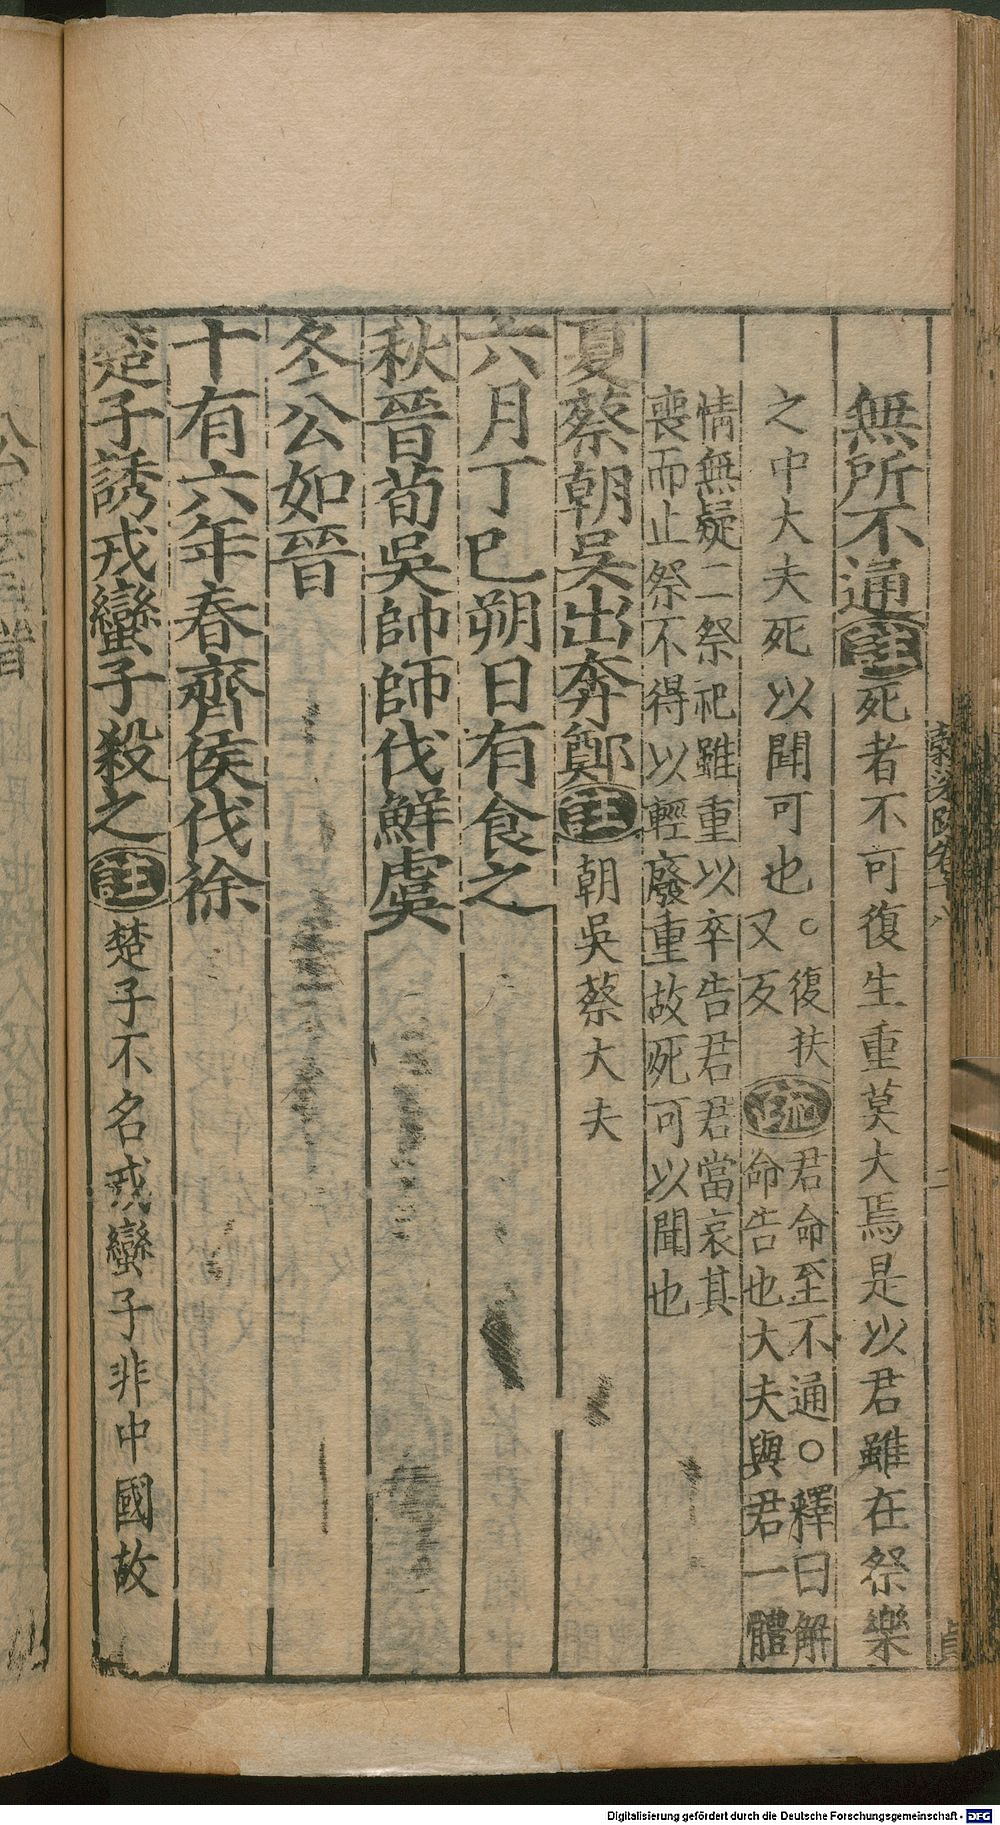 無所不通註死者不可復生重莫大焉是以君雖在祭樂
之中大夫死以聞可也。復扶
又反疏君命至不通○釋曰解
命告也大夫與君一體
情無疑二祭祀雖重以卒告君君當哀其
喪而止祭不得以輕廢重故死可以聞也
夏蔡朝吳出奔鄭註朝吳蔡大夫
六月丁巳朔日有食之
秋晉荀吳帥師伐鮮虞
冬公如晉
十有六年春齊侯伐徐
楚子誘戎蠻子殺之註楚子不名戎蠻子非中國故
二
貞
Digitalisierung gefördert durch die Deutsche Forschungsgemeinschaft - DFG